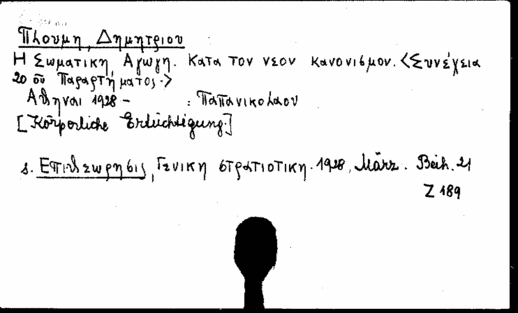 Πλουμη, Δημητριου
Η Σωματικη Αγωγη. Κατα τον νεον κανονισμον. <Συνέχεια
20 οῦ Παραρτήματος.>
Αθηναι 1928 – : Παπανικολαου
[Körperliche Ertüchtigung.]
s. Επιθεωρησις, Γενικη στρατιοτικη. 1928, März. Beih. 21
Z 189